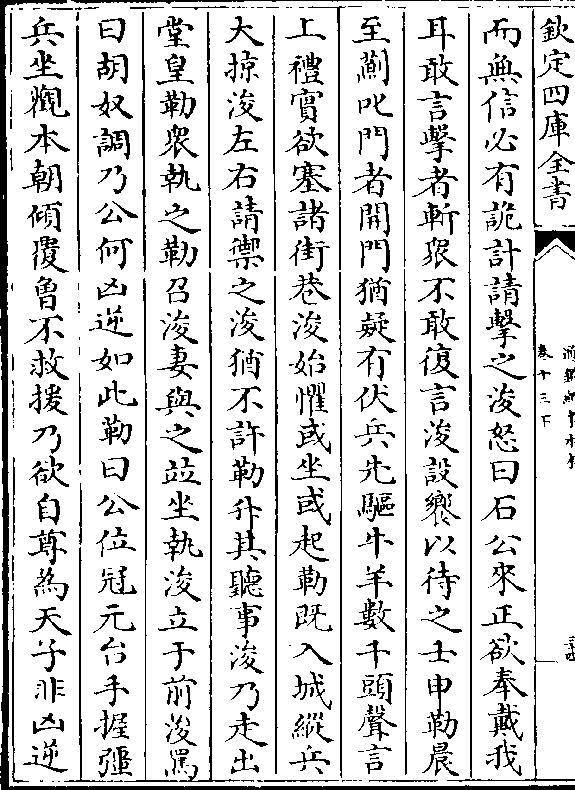 欽定四庫全書
卷十三下
而無信必有詭計請擊之浚怒曰石公來正欲奉戴我
耳敢言擊者斬衆不敢復言浚設饗以待之壬申勒晨
至薊叱門者開門猶疑有伏兵先驅牛羊數千頭聲言
上禮實欲塞諸街巷浚始懼或坐或起勒既入城縱兵
大掠浚左右請禦之浚猶不許勒升其聽事浚乃走出
堂皇勒衆執之勒召浚妻與之竝坐執浚立于前浚罵
曰胡奴調乃公何凶逆如此勒曰公位冠元台手握彊
兵坐觀本朝傾覆曾不救援乃欲自尊為天子非凶逆